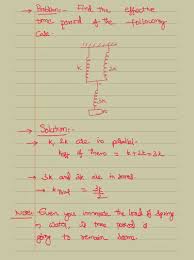 → Problem:- Find the effective
time period of the following
case.
k
2k
3k
→ Solution:-
→ k, 2k are in parallel.
keff of them = k+2k=3k
→ 3k and 3k are in series.
→ knet = 3k/2
Note: Given you immerse the load of spring
in water, is time period is
going to remain same.